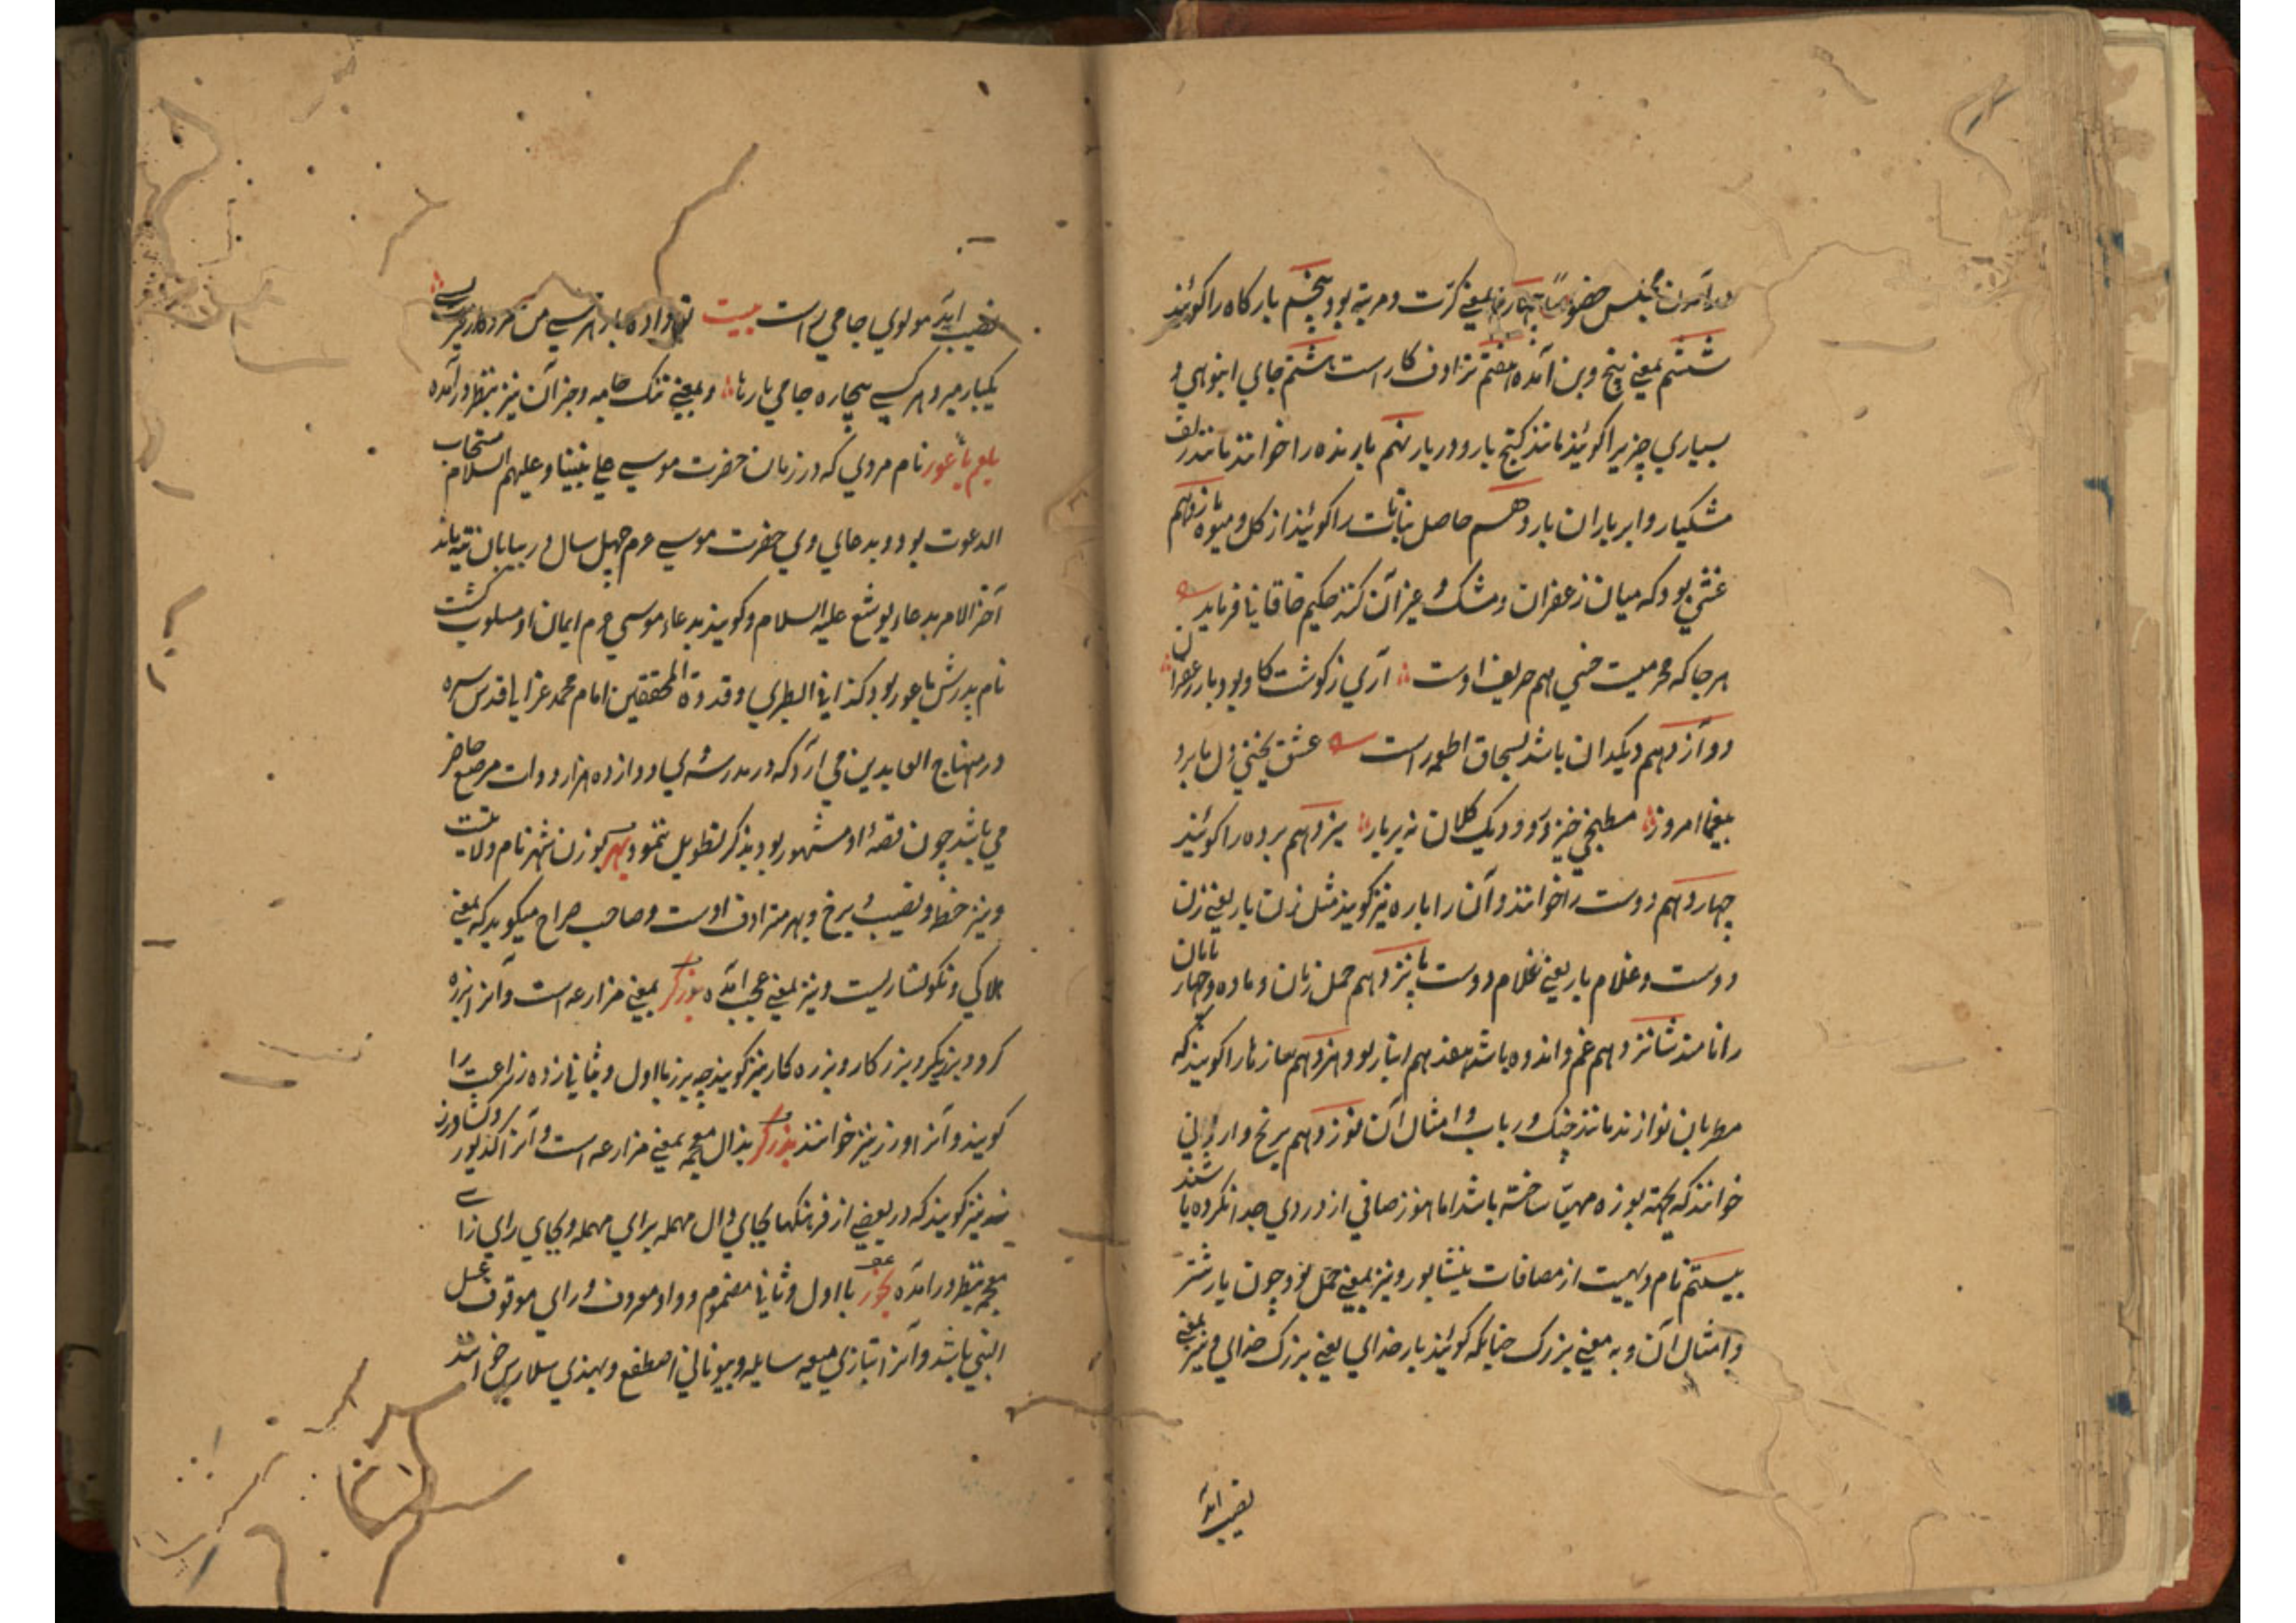 درآمدن مجلس خصوصاً چهارم بمعنی کرت و مرتبه بود پنجم بارکاه را کوئیند
ششم بمعنی بیخ و بن آمده هفتم ترادف کار است هشتم جای انبوهی و
بسیاری چیز را کوئیند مانند کنج بار و دریابار نهم بارنده را خوانند مانند زلف
مشکبار و ابر باران بار دهم حاصل نباتات را کوئیند از کل و میوه یازدهم
غشی بود که میان زعفران و مشک و غیر آن کنند حکیم خاقانی فرماید
هر جا که محرمیست خسی هم حریف اوست آری ز کوشت کاو بود بار زعفران
دوازدهم دیکدان باشد بسحاق اطعمه راست عشق یخنی دل ما برد
بیغما امروز مطبخی خیز و دو دیک کلان نه بربار سیزدهم برده را کوئیند
چهاردهم دوست را خوانند و آن را باره نیز کویند مثل زن بار یعنی زن
دوست و غلام بار یعنی غلام دوست پانزدهم حمل زنان و ماده و چهار پایان
را نامند شانزدهم غم و اندوه باشد هفدهم انبار بود هژدهم سازها را کویند که
مطربان نوازند مانند چنک و رباب و امثال آن نوزدهم برنج و ارزانی
خوانند که بجهة بوزه مهیّا ساخته باشند اما هنوز صافی از دردی جدا نکرده باشند
بیستم نام دیهیست از مضافات نیشاپور و نیز بمعنی حمل بود چون بار شتر
و امثال آن و به معنی بزرک چنانکه کوئیند بار خدای یعنی بزرک خدای و نیز بمعنی
نصیب آمده
نصیب آمده مولوی جامی راست بیت
یکبار میرد هر کسی بیچاره جامی بارها و بمعنی تنک جامه و جز آن نیز بنظر درآمده
بلعم باعور نام مردی که در زمان حضرت موسی علی نبینا و علیهم السلام مستجاب
الدعوت بود و بدعای وی حضرت موسی ع م چهل سال در بیابان تیه ماند
آخر الامر بدعاء یوشع علیه السلام و کویند بدعاء موسی ع م ایمان او مسلوب کشت
نام پدرش باعور بود کذا فی الطبری و قدوة المحققین امام محمد غزالی قدس سره
در منهاج العابدین می آرد که در مدرسهٔ وی دوازده هزار دوات مرصع حاضر
می باشد چون قصهٔ او مشهور بود بذکر تطویل ننمود بهر بوزن شهر نام ولایتست
و نیز حظ و نصیب و برخ و بهره مترادف اوست و صاحب صراح میکوید که بمعنی
هلاکی و نکونساریست و نیز بمعنی عجب آمده برزکر بمعنی مزارعه است و آنرا برزه
کر و برزیکر و برزکار و برزه کار نیز کویند چه برز با اول و ثانی زده زراعت را
کویند و آنرا ورز نیز خوانند بذرکر بذال معجمه بمعنی مزارعه است و آنرا کدیور و کشاورز
نیز کویند که در بعضی از فرهنکها بجای دال مهمله برای مهمله و بجای رای زای
معجمه بنظر درآمده بخور با اول و ثانی مضموم و واو معروف و رای موقوف عسل
البنی باشد و آنرا بتازی میعه سایله و بیونانی اصطقع و بهندی سلارس خوانند